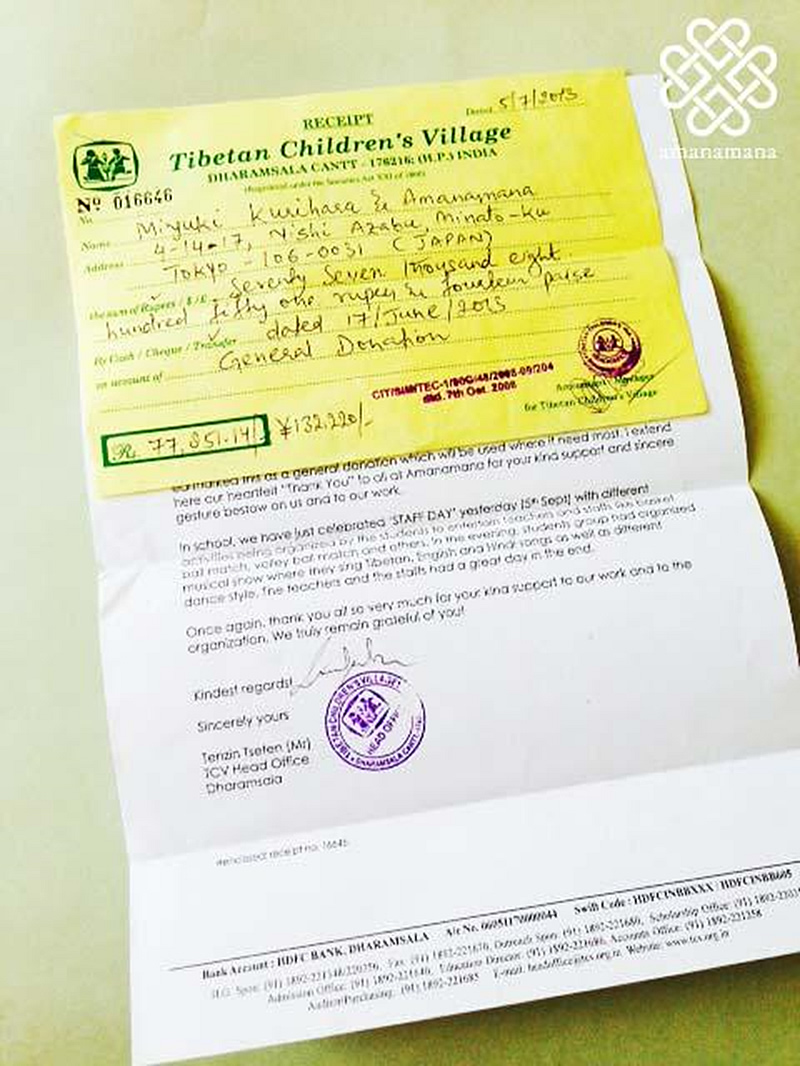 amanamana
RECEIPT
Dated 5/7/2013
Tibetan Children's Village
DHARAMSALA CANTT - 176216: (H.P.) INDIA
(Registered under the Societies Act XXI of 1860)
Nº 016646
Name Miyuki Kurihara & Amanamana
Address 4-14-17, Nishi Azabu, Minato-ku
TOKYO - 106-0031 (JAPAN)
the sum of Rupees / $ / £ Seventy Seven thousand eight
hundred fifty one rupees & fourteen paise
By Cash / Cheque / Transfer dated 17/June/2013
on account of General Donation
CIT/SHIMTEC-1/80G/48/2008-09/204
dtd. 7th Oct. 2008
for Tibetan Children's Village
Rs. 77,851.14/- ¥132,220/-
earmarked this as a general donation which will be used where it need most. I extend
here our heartfelt "Thank You" to all at Amanamana for your kind support and sincere
gesture bestow on us and to our work.
In school, we have just celebrated 'STAFF DAY' yesterday (5th Sept) with different
activities being organized by the students to entertain teachers and staffs like basket
ball match, volley ball match and others. In the evening, students group had organized
musical show where they sing Tibetan, English and Hindi songs as well as different
dance style. The teachers and the staffs had a great day in the end.
Once again, thank you all so very much for your kind support to our work and to the
organization. We truly remain grateful of you!
Kindest regards!
Sincerely yours
TIBETAN CHILDREN'S VILLAGE
HEAD OFFICE
DHARAMSALA CANTT.
Tenzin Tseten (Mr)
TCV Head Office
Dharamsala
#enclosed receipt no. 16646
Bank Account : HDFC BANK, DHARAMSALA A/c No. Swift Code : HDFCINBBXXX / HDFCINBB605
H.O. Spon: (91) 1892-221348/220356, Fax: (91) 1892-221670, Outreach Spon: (91) 1892-221680, Scholarship Office: (91)
Admission Office: (91) 1892-221640, Education Director: (91) 1892-221686, Accounts Office: (91) 1892-221358
Auditor/Purchasing: (91) 1892-221685 E-mail: headoffice@tcv.org.in Website: www.tcv.org.in